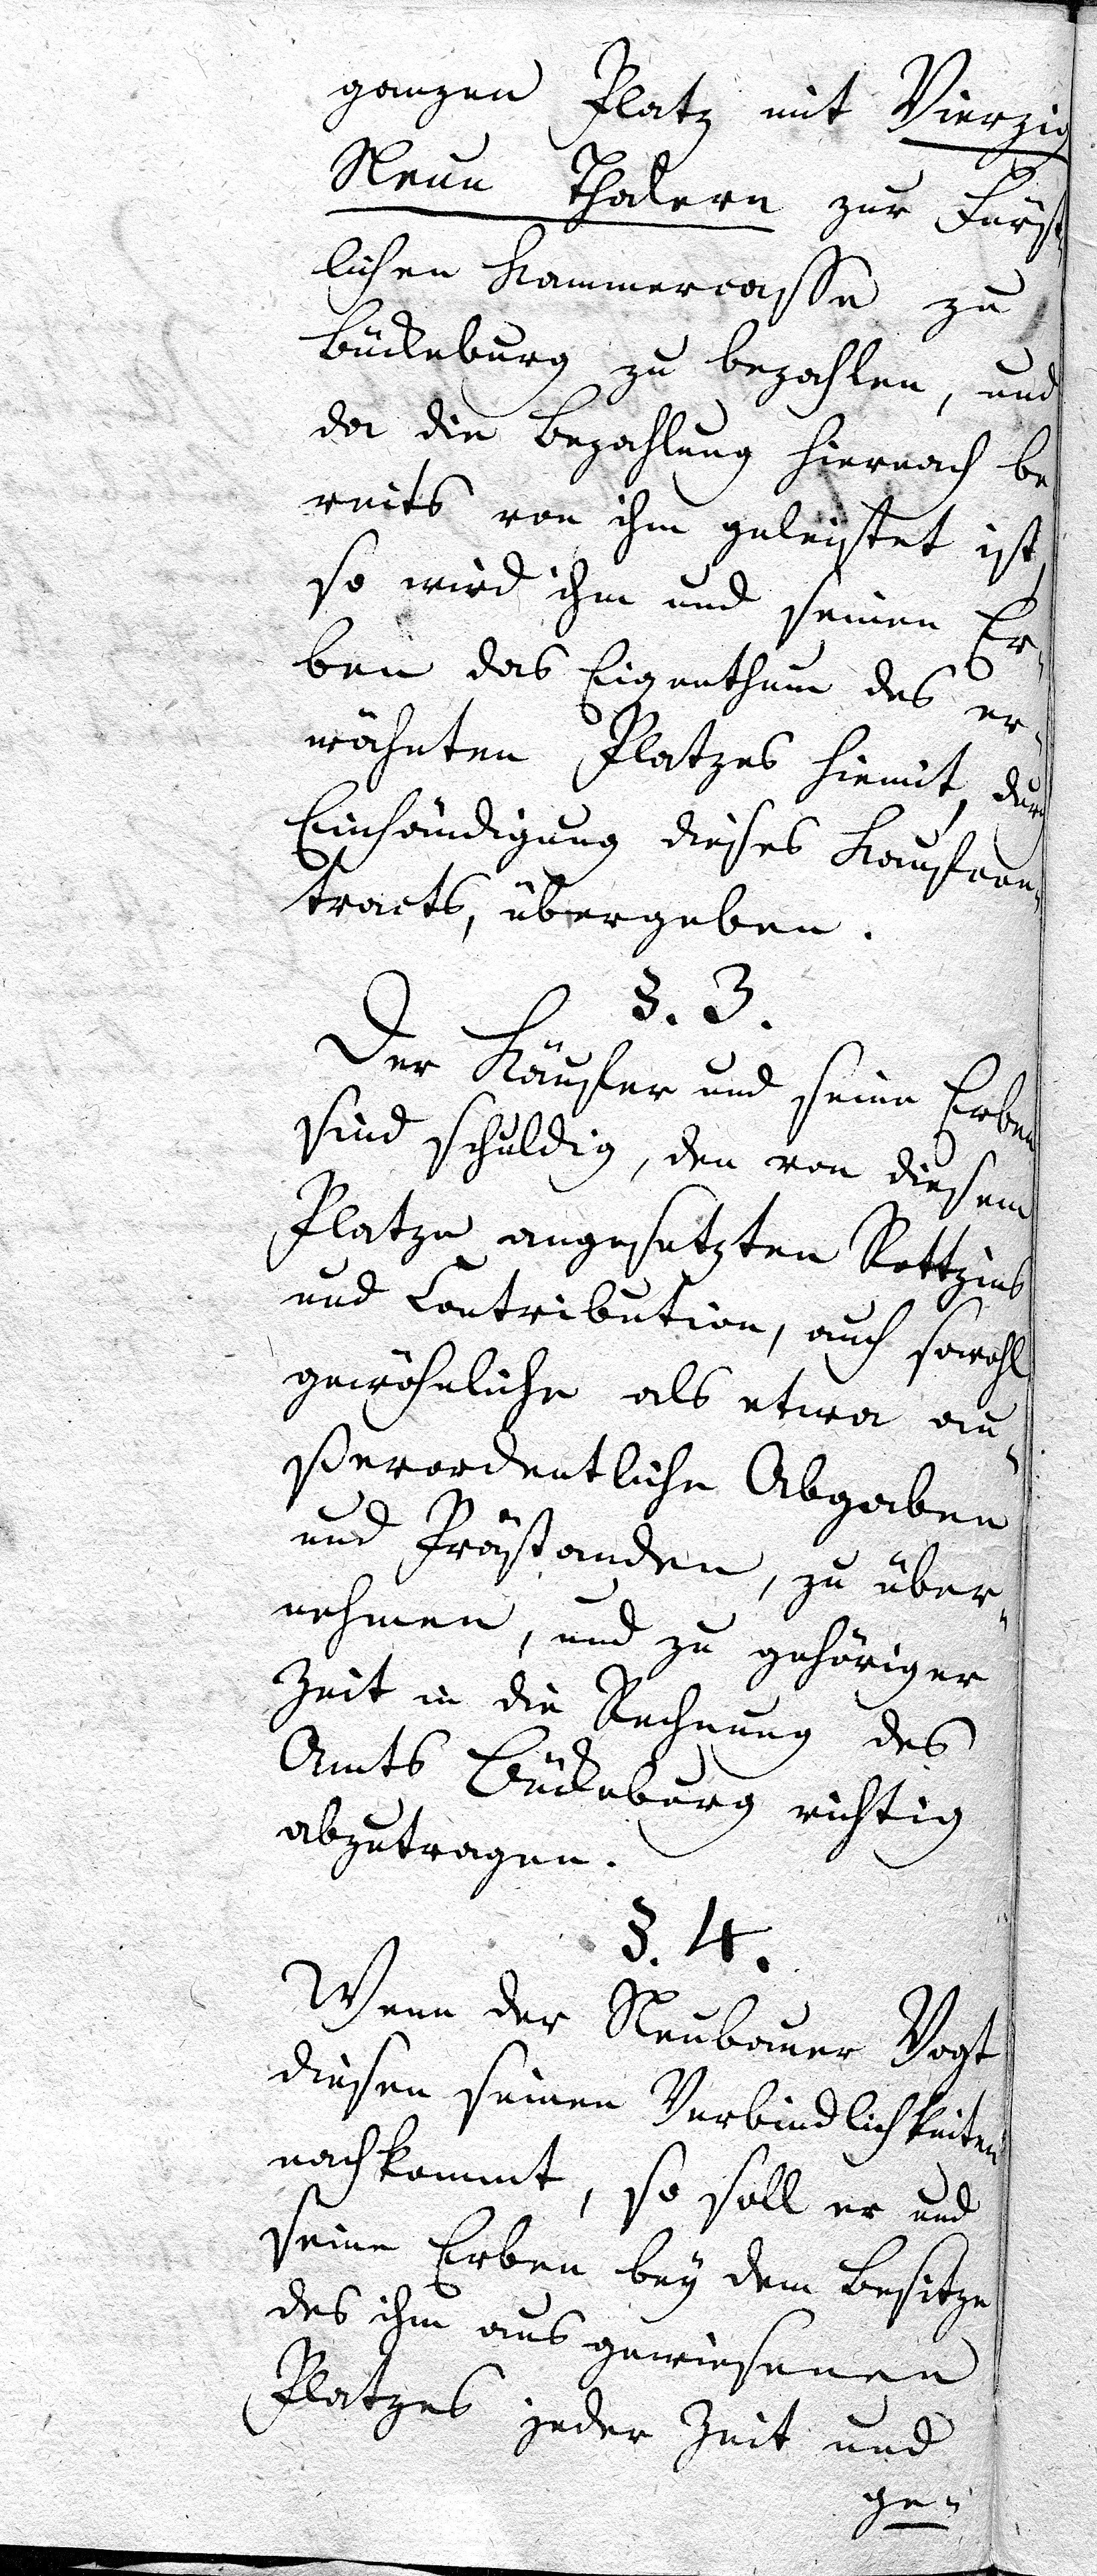 ganzen Platz mit Vierzig
Neun Thalern zur Fürst-
lichen Kammercasse zu
Bückeburg zu bezahlen, und
da die Bezahlung hiernach be-
reits von ihm geleistet ist,
so wird ihm und seinen Er-
ben das Eigenthum des er-
wähnten Platzes hiemit, durch
Einhändigung dieses Kaufcon-
tracts, übergeben.
§. 3.
Der Käufer und seine Erben
sind schuldig, den von diesem
Platze angesetzten Rottzins
und Contribution, auch sowohl
gewöhnliche als etwa au-
ßerordentliche Abgaben
und Prästanden, zu über-
nehmen, und zu gehöriger
Zeit in die Rechnung des
Amts Bückeburg richtig
abzutragen.
§. 4.
Wenn der Neubauer Vogt
diesen seinen Verbindlichkeiten
nachkommt, so soll er und
seine Erben bey dem Besitze
des ihm ausgewiesenen
Platzes jeder Zeit und
ge-